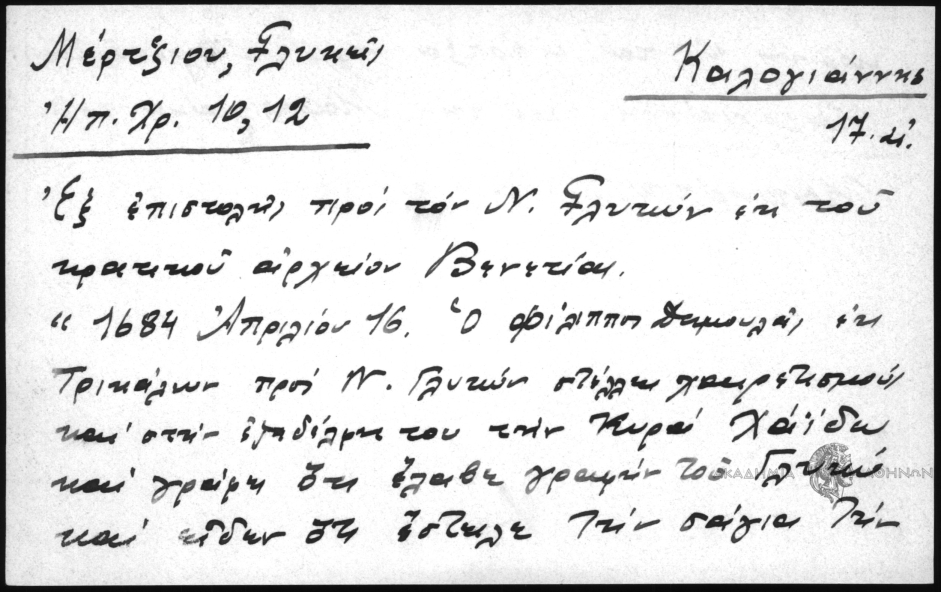 Μέρτζιου, Γλυκεῖς
Καλογιάννης
Ἠπ. Χρ. 10, 12
17. αἰ.
Ἐξ ἐπιστολῆς πρὸς τὸν Ν. Γλυκύν ἐκ τοῦ
κρατικοῦ ἀρχείου Βενετίας.
" 1684 Ἀπριλίου 16. Ὁ Φίλιππος Δημουλᾶς ἐκ
Τρικάλων πρὸς Ν. Γλυκύν στέλλει χαιρετισμούς
καὶ στὴν ἐξαδέλφη του τὴν Κυρὰ Χάϊδω
καὶ γράφει ὅτι ἔλαβε γραφήν τοῦ Γλυκύ
καὶ εἶδεν ὅτι ἔστειλε τὴν σάγια τὴν
ΑΚΑΔΗΜΙΑ ΑΘΗΝΩΝ